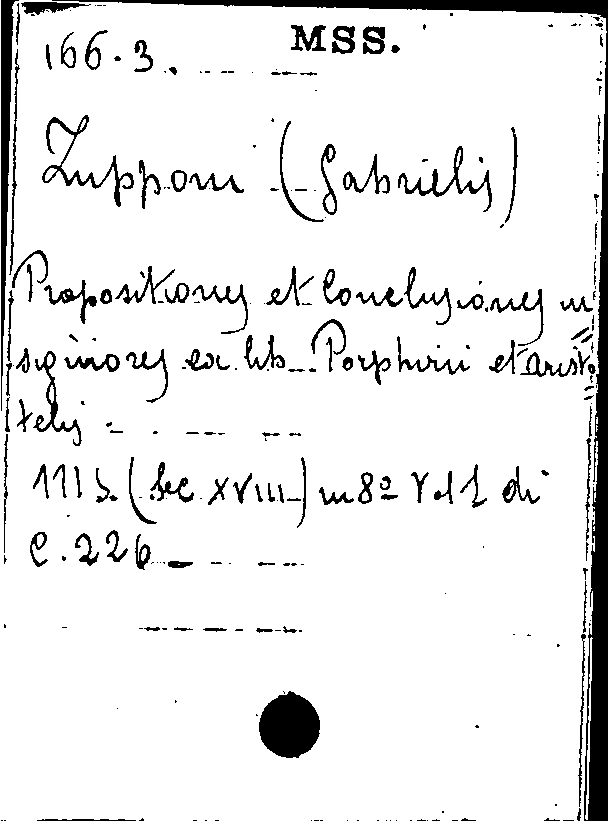 166.3. MSS.
Zupponi (Gabrielis)
Propositiones et Conclusiones in
signiores ex lib. Porphirii et aristo
telis
Ms. (Sec XVIII) in 8º Vol 1 di
C. 226